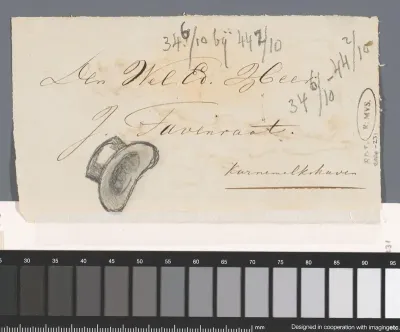 34 6/10 bij 44 2/10
Den Wel Ed. Z Heer
34 6/10 - 44 2/10
J. Tavenraat.
Karnemelkshaven
R. MVS.
25 30 35 40 45 50 55 60 65 70 75 80 85 90 95
mm
Designed in cooperation with imagingetc.